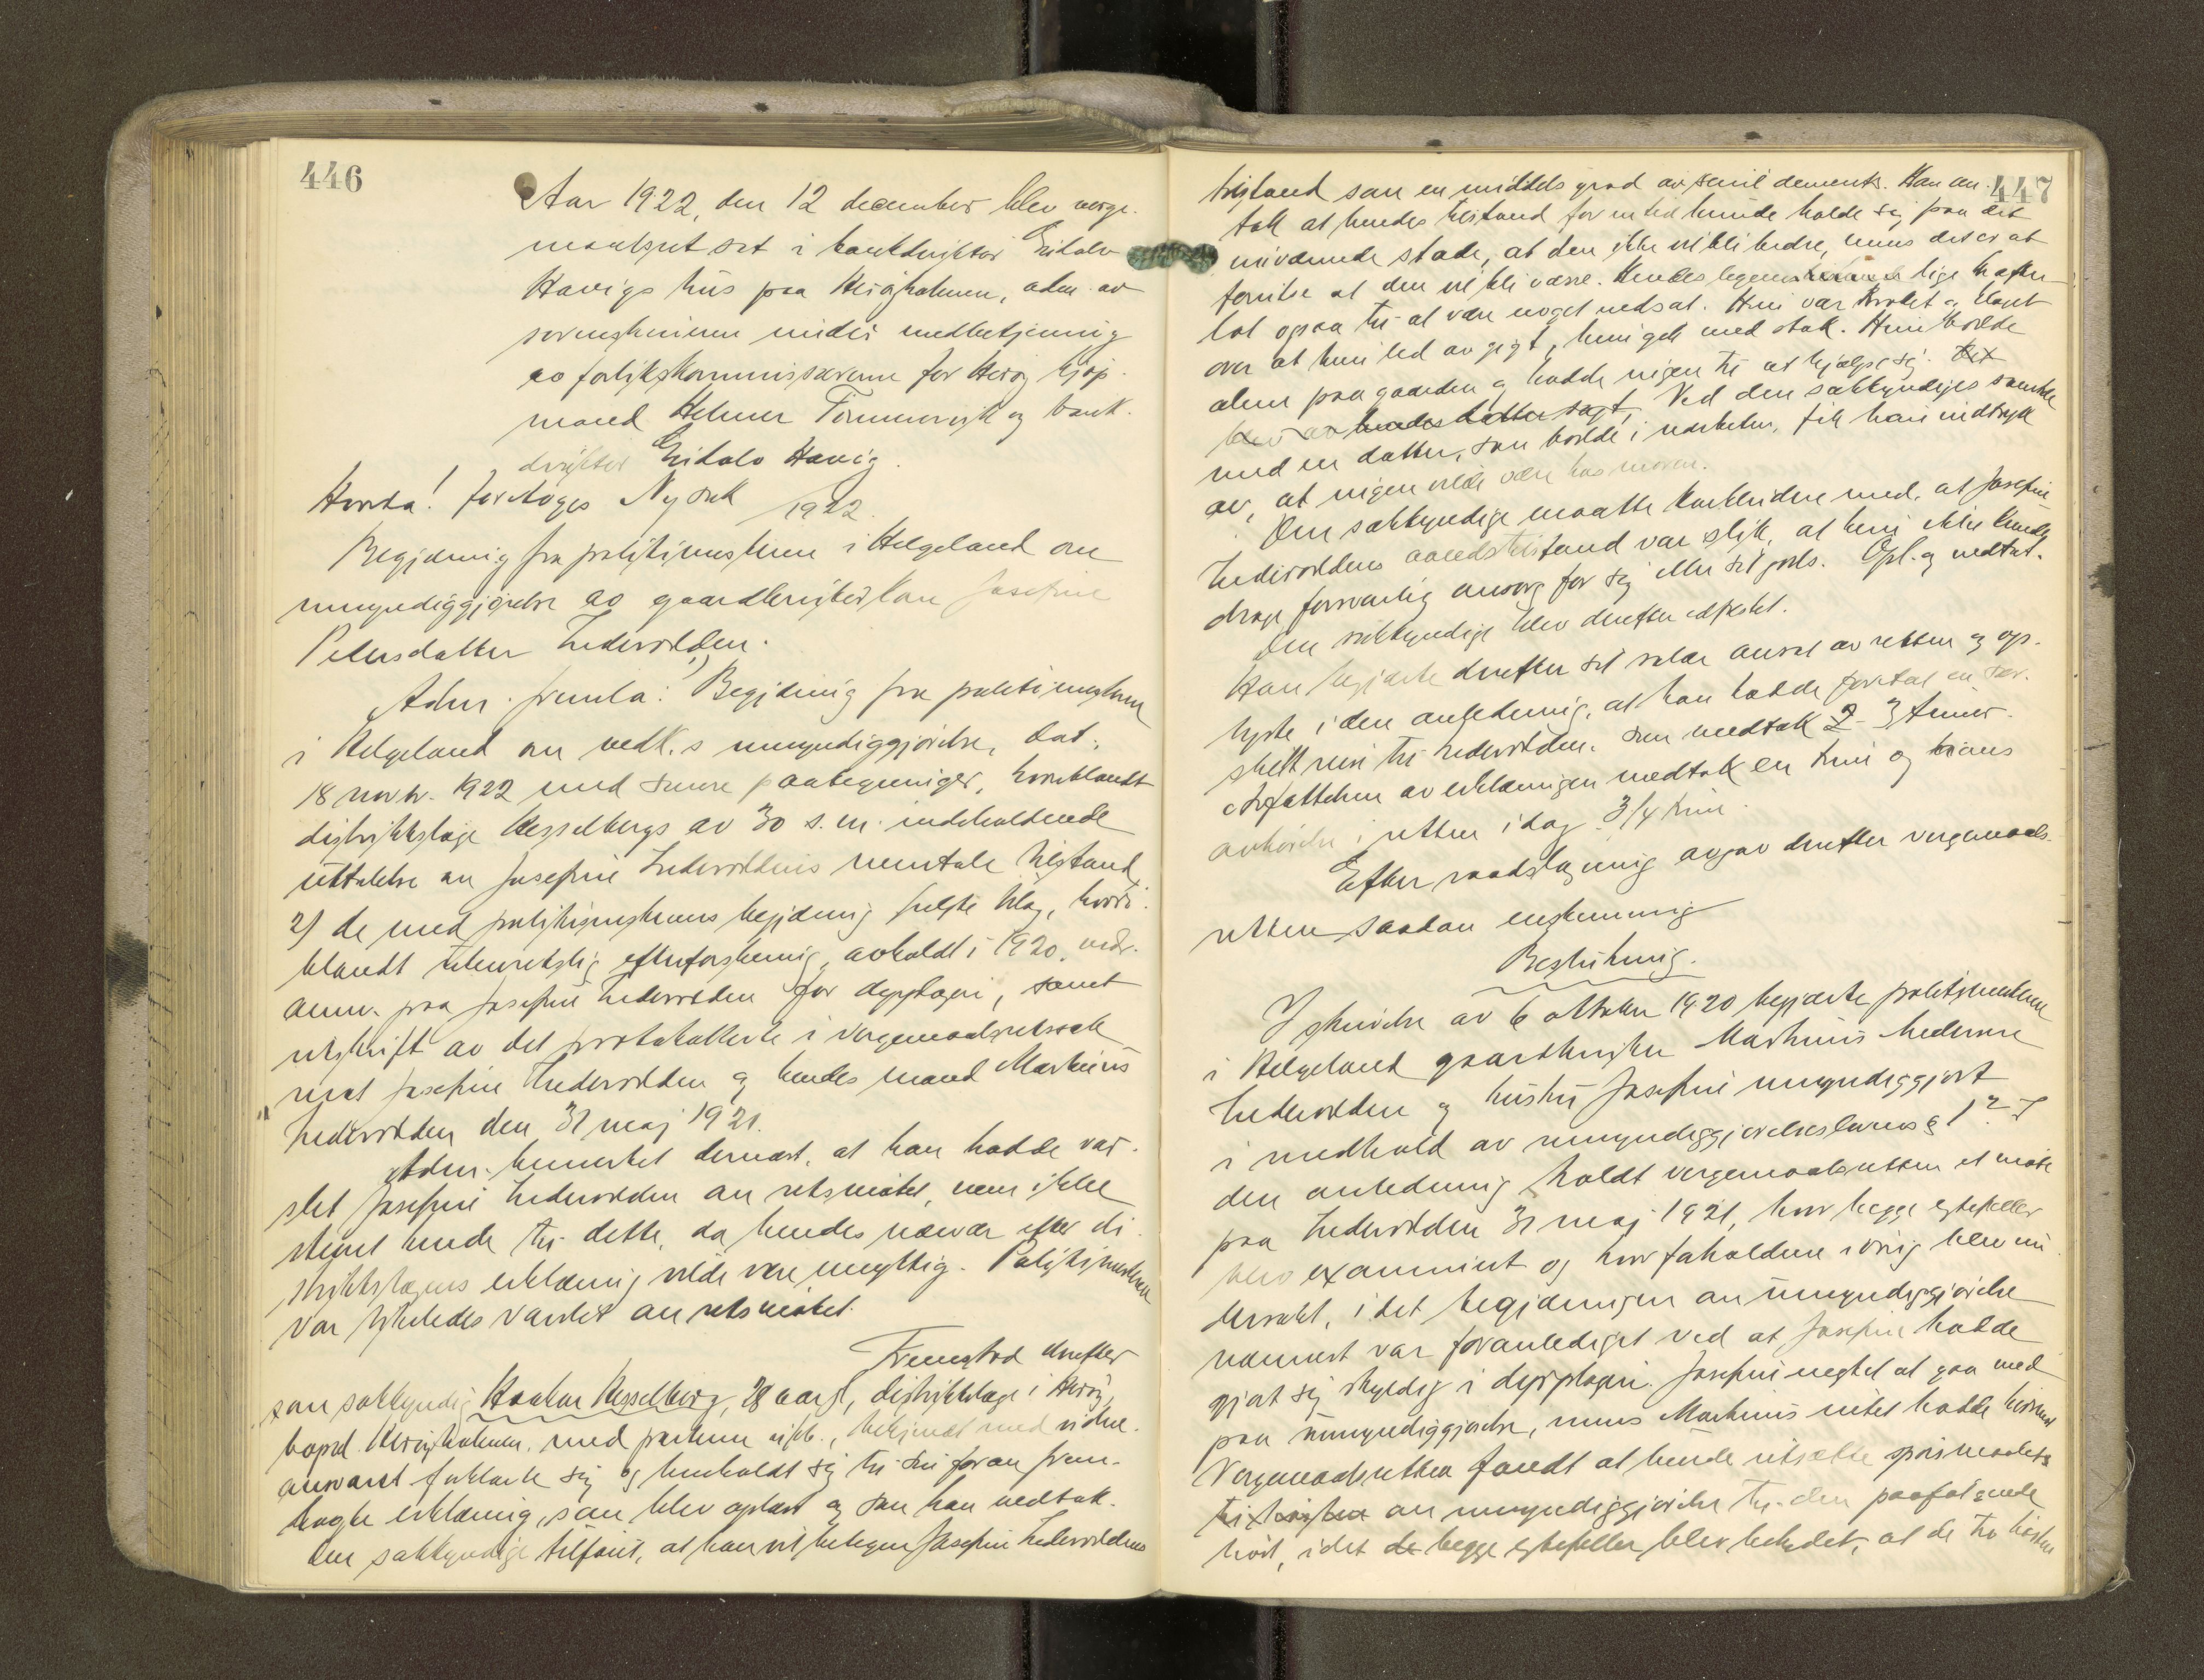 446
Aar 1922, den 12 december blev verge-
maalsret sat i bankdirektør Eidolv
Havigs hus paa Herøyholmen, adm. av
sorenskriveren under medbetjening
av forlikskommissærerne for Herøy kjøp-
mand Helmer Tømmervik og bank-
direktør Eidolv Havig.
Hvorda! foretoges Ny sak /1922.
Begjæring fra politimesteren i Helgeland om
umyndiggjørelse av gaardbrukerkone Josefine
Petersdatter Indervolden.
Adm. fremla: 1) Begjæring fra politimesteren
i Helgeland om vedk.s umyndiggjørelse, dat.
18 novbr. 1922 med senere paategninger, hvoriblandt
distriktslæge Hesselbergs av 30 s.m. indeholdende
uttalelse om Josefine Indervoldens mentale tilstand,
2) de med politimesterens begjæring fulgte bilag, hvori-
blandt utenretslig efterforskning, avholdt i 1920, vedr.
anm. paa Josefine Indervolden for dyrplageri, samt
utskrift av det protokollerte i vergemaalsretssak
mot Josefine Indervolden og hendes mand Martinus
Indervolden den 31 maj 1921.
Adm. bemerket dernæst, at han hadde var-
slet Josefine Indervolden om retsmøtet, men ikke
stevnet hende til dette, da hendes nærvær efter di-
striktslægens erklæring vilde være unyttig. Politimesteren
var likeledes varslet om retsmøtet.
Fremstod derefter
som sakkyndig Haakon Hesselberg, 28 aar gl, distriktslæge i Herøy,
bopæl Herøyholmen, med parterne ubesl., bekjendt med vidne-
ansvaret forklarte sig og henholdt sig til sin foran frem-
lagte erklæring, som blev oplæst og som han vedtok.
Den sakkyndige tilføiet, at han vil betegne Josefine Indervoldens
447
tilstand som en middels grad av senil demens. Han an-
tok at hendes tilstand for en tid kunde holde sig paa det
nuværende stade, at den ikke vil bli bedre, mens det er at
formode at den vil bli værre. Hendes legemlige kræfter
lot ogsaa til at være noget nedsat. Hun var kroket og klaget
over at hun led av gigt, hun gik med stok. Hun bodde
alene paa gaarden og hadde ingen til at hjælpe sig. Det
blev av hendes datter sagt, Ved den sakkyndiges samtale
med en datter, som bodde i nærheten, fik han indtryk
av, at ingen vilde være hos moren.
Den sakkyndige maatte konkludere med, at Josefine
Indervoldens aandstilstand var slik, at hun ikke kunde
drage forsvarlig omsorg for sig eller sit gods. Opl. og vedtat.
Den sakkyndige blev derefter edfæstet.
Han begjærte derefter sit salær ansat av retten og op-
lyste i den anledning, at han hadde foretat en sær-
skilt reise til Indervolden, som medtok 2-3 timer.
Avfattelsen av erklæringen medtok en time og hans
avhørelse i retten i dag 3/4 time.
Efter raadslagning avgav derefter vergemaals-
retten saadan enstemmig
Beslutning.
I skrivelse av 6 oktober 1920 begjærte politimesteren
i Helgeland gaardbruker Martinus
Indervolden og hustru Josefine umyndiggjort
i medhold av umyndiggjørelseslovens § 1 2. I
den anledning holdt vergemaalsretten et møte
paa Indervolden 31 maj 1921, hvor begge egtefeller
blev examinert og hvor forholdene iøvrig blev un-
dersøkt, idet begjæringen om umyndiggjørelse
nærmest var foranlediget ved at Josefine hadde
gjort sig skyldig i dyrplageri. Josefine negtet at gaa med
paa umyndiggjørelse, mens Martinus intet hadde herimot
Vergemaalsretten fandt at kunde utsætte spørsmaalet
om umyndiggjørelse til den paafølgende
høst, idet de begge egtefeller blev betydet, at de fra høsten